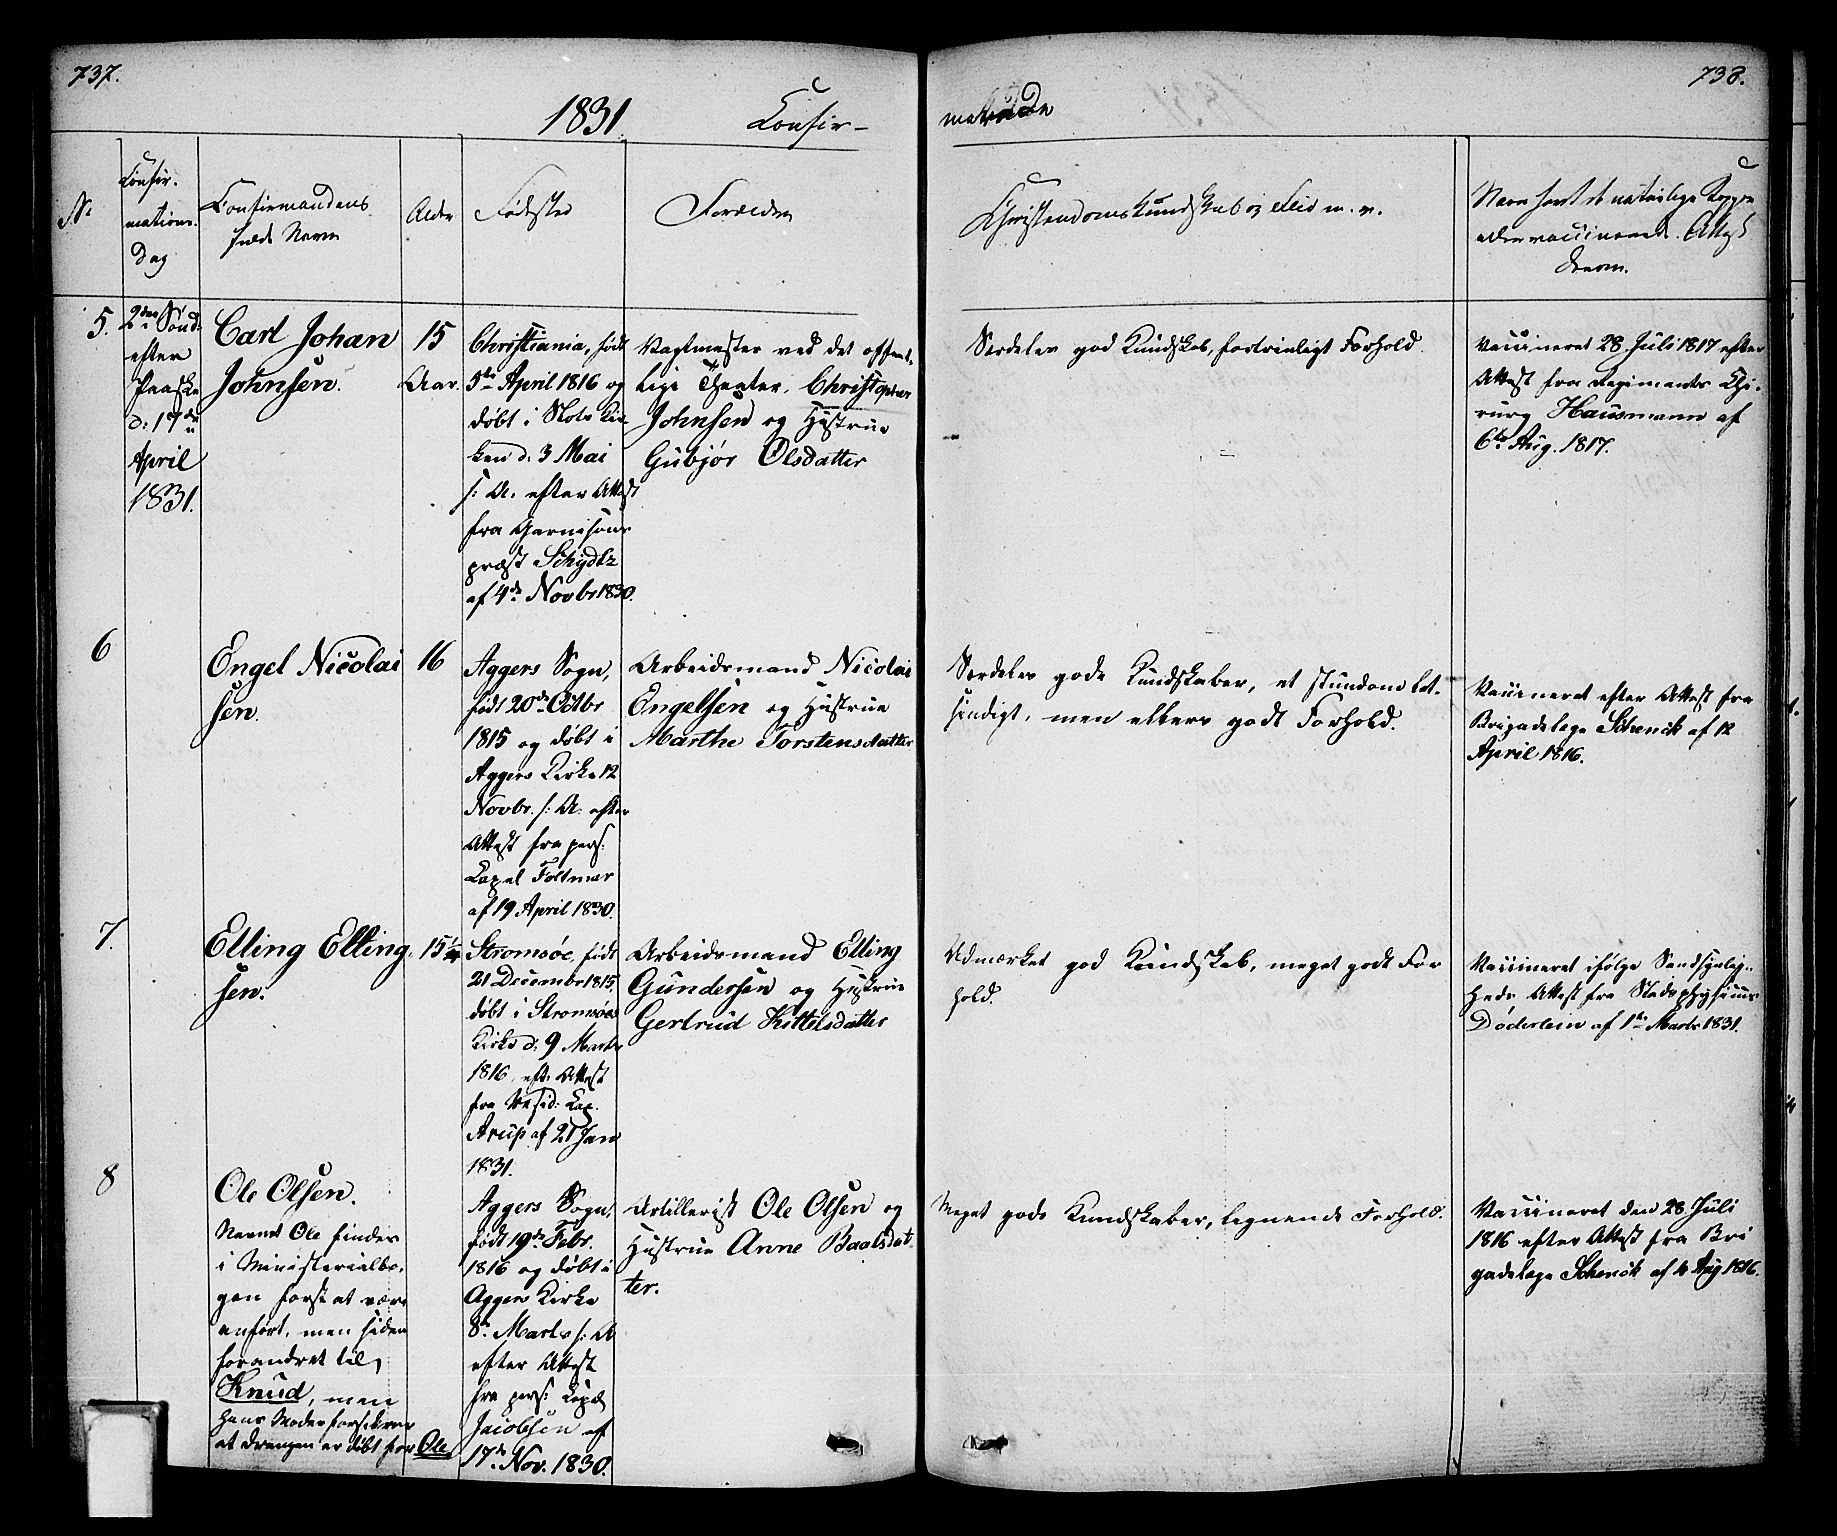 737.
738.
1831.
Confir-
merede
No
Confir-
mations-
Dag
Confirmandens
fulde Navn
Alder
Fødested
Forældre
Christendoms Kundskab og Flid m. v.
Naar havt de naturlige Kopper
eller vaccineret. Attest
derom.
5.
2den Sönd:
efter
Paaske
d: 17de
April
1831.
Carl Johan
Johnsen.
15
Aar.
Christiania, født
5te April 1816 og
døbt i Slots Kir-
ken d: 3 Mai
s: A. efter Attest
fra Garnisons
præst Schydtz
af 4de Novbr 1830.
Vagtmester ved det offent-
lige Theater, Christopher
Johnsen og Hustrue
Gubjør Olsdatter
Serdeles god Kundskab, fortrinligt Forhold.
Vaccineret 28 Juli 1817 efter
Attest fra Regiments Chi-
rurg Hausmann af
6te Aug. 1817.
6
Engel Nicolai
sen.
16
Aggers Sogn,
født 20de Octbr
1815 og døbt i
Aggers Kirke 12
Novbr. s: A: efter
Attest fra pers:
Capel Foltmar
af 19 April 1830.
Arbeidsmand Nicolai
Engelsen og Hustrue
Marthe Torstensdatter
Serdeles gode Kundskaber, et stundom let-
sindigt, men ellers godt Forhold.
Vaccineret efter Attest fra
Brigadelæge Schenck af 12
April 1816.
7.
Elling Elling
sen.
15 1/4
Stromsöe, født
21 Decembr 1815,
døbt i Stromsöes
Kirke d: 9 Marts
1816, eft. Attest
fra Resid: Cap.
Arup af 21 Jan
1831.
Arbeidsmand Elling
Gundersen og Hustrue
Gertrud Kittelsdatter
Udmærket god Kundskab, meget godt For
hold.
Vaccineret ifølge
Attest fra Stadsphysicus
Døderlein af 1te Marts 1831.
8
Ole Olsen.
Navnet Ole findes
i Ministerialbo-
gen først at være
anført, men siden
forandret til,
Knud, men
hans Moder forsikrer
at drengen er døbt for Ole
Aggers Sogn,
født 19de Febr.
1816 og døbt i
Aggers Kirke
8de Marts s: A
efter Attest
fra pers: Capel
Jacobsen af
17de Nov. 1830.
Artillerist Ole Olsen og
Hustrue Anne Baalsdat-
ter.
Meget gode Kundskaber, lignende Forhold.
Vaccineret den 28 Juli
1816 efter Attest fra Bri
gadelæge Schenck af 4 Aug 1816.